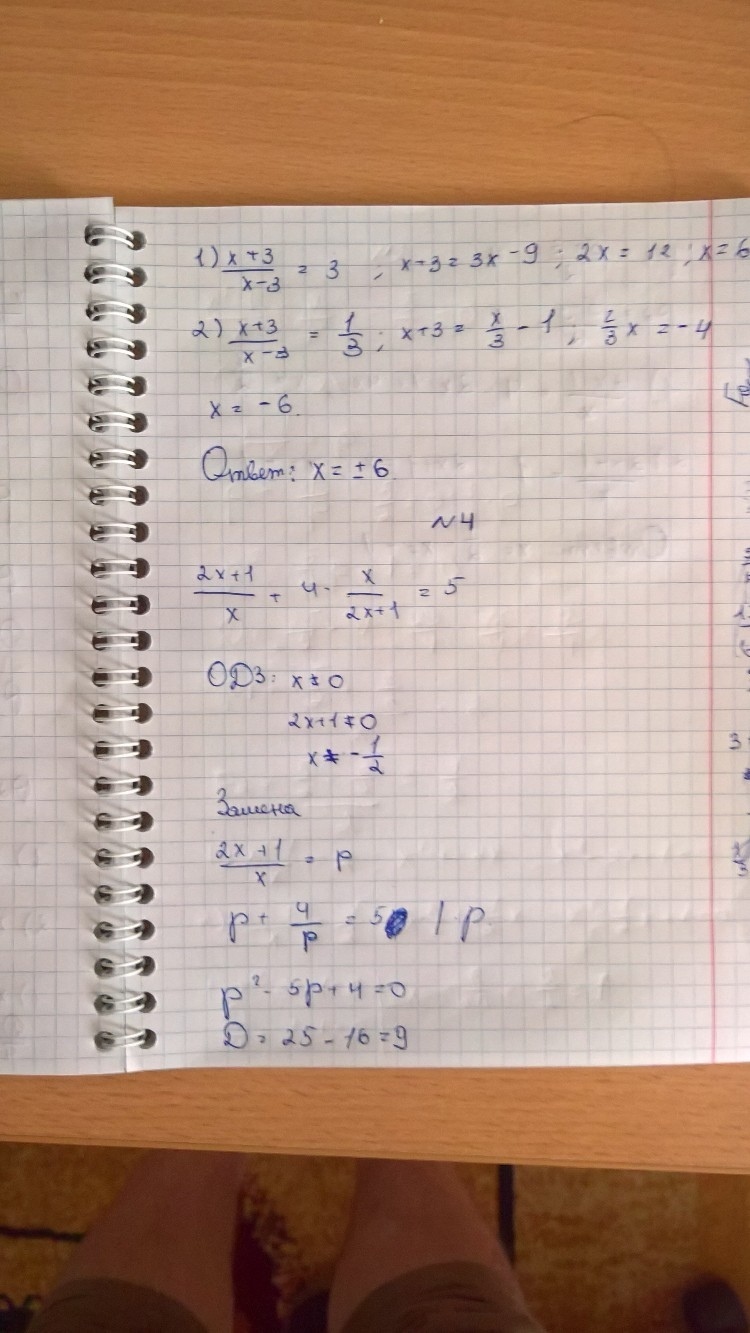 1) x+3/x-3 = 3 ; x-3 = 3x-9 ; 2x = 12 ; x = 6
2) x+3/x-3 = 1/3 ; x+3 = x/3 - 1 ; 2/3 x = -4
x = -6.
Ответ: x = ± 6.
№4
2x+1/x + 4· x/2x+1 = 5
ОДЗ: x ≠ 0
2x+1 ≠ 0
x ≠ -1/2
Замена
2x+1/x = p
p + 4/p = 5 | · p
p² - 5p + 4 = 0
D = 25 - 16 = 9